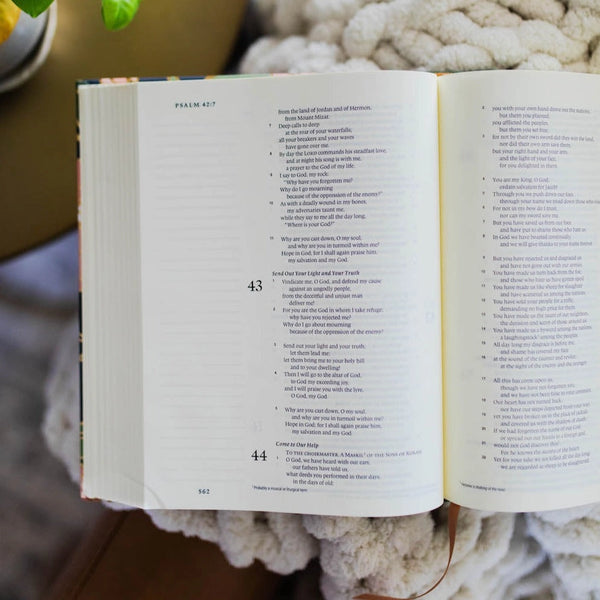 PSALM 42:7
from the land of Jordan and of Hermon,
from Mount Mizar.
7 Deep calls to deep
at the roar of your waterfalls;
all your breakers and your waves
have gone over me.
8 By day the LORD commands his steadfast love,
and at night his song is with me,
a prayer to the God of my life.
9 I say to God, my rock:
"Why have you forgotten me?
Why do I go mourning
because of the oppression of the enemy?"
10 As with a deadly wound in my bones,
my adversaries taunt me,
while they say to me all the day long,
"Where is your God?"
11 Why are you cast down, O my soul,
and why are you in turmoil within me?
Hope in God; for I shall again praise him,
my salvation and my God.
Send Out Your Light and Your Truth
43 1 Vindicate me, O God, and defend my cause
against an ungodly people,
from the deceitful and unjust man
deliver me!
2 For you are the God in whom I take refuge;
why have you rejected me?
Why do I go about mourning
because of the oppression of the enemy?
3 Send out your light and your truth;
let them lead me;
let them bring me to your holy hill
and to your dwelling!
4 Then I will go to the altar of God,
to God my exceeding joy,
and I will praise you with the lyre,
O God, my God.
5 Why are you cast down, O my soul,
and why are you in turmoil within me?
Hope in God; for I shall again praise him,
my salvation and my God.
Come to Our Help
44 TO THE CHOIRMASTER. A MASKIL OF THE SONS OF KORAH.
O God, we have heard with our ears,
our fathers have told us,
what deeds you performed in their days,
in the days of old:
1 Probably a musical or liturgical term
562
2 you with your own hand drove out the nations,
but them you planted;
you afflicted the peoples,
but them you set free;
3 for not by their own sword did they win the land,
nor did their own arm save them,
but your right hand and your arm,
and the light of your face,
for you delighted in them.
4 You are my King, O God;
ordain salvation for Jacob!
5 Through you we push down our foes;
through your name we tread down those who
6 For not in my bow do I trust,
nor can my sword save me.
7 But you have saved us from our foes
and have put to shame those who hate us.
8 In God we have boasted continually,
and we will give thanks to your name forever.
9 But you have rejected us and disgraced us
and have not gone out with our armies.
10 You have made us turn back from the foe,
and those who hate us have gotten spoil.
11 You have made us like sheep for slaughter
and have scattered us among the nations.
12 You have sold your people for a trifle,
demanding no high price for them.
13 You have made us the taunt of our neighbors,
the derision and scorn of those around us.
14 You have made us a byword among the nations,
a laughingstock among the peoples.
15 All day long my disgrace is before me,
and shame has covered my face
16 at the sound of the taunter and reviler,
at the sight of the enemy and the avenger.
17 All this has come upon us,
though we have not forgotten you,
and we have not been false to your covenant.
18 Our heart has not turned back,
nor have our steps departed from your way;
19 yet you have broken us in the place of jackals
and covered us with the shadow of death.
20 If we had forgotten the name of our God
or spread out our hands to a foreign god,
21 would not God discover this?
For he knows the secrets of the heart.
22 Yet for your sake we are killed all the day long;
we are regarded as sheep to be slaughtered.